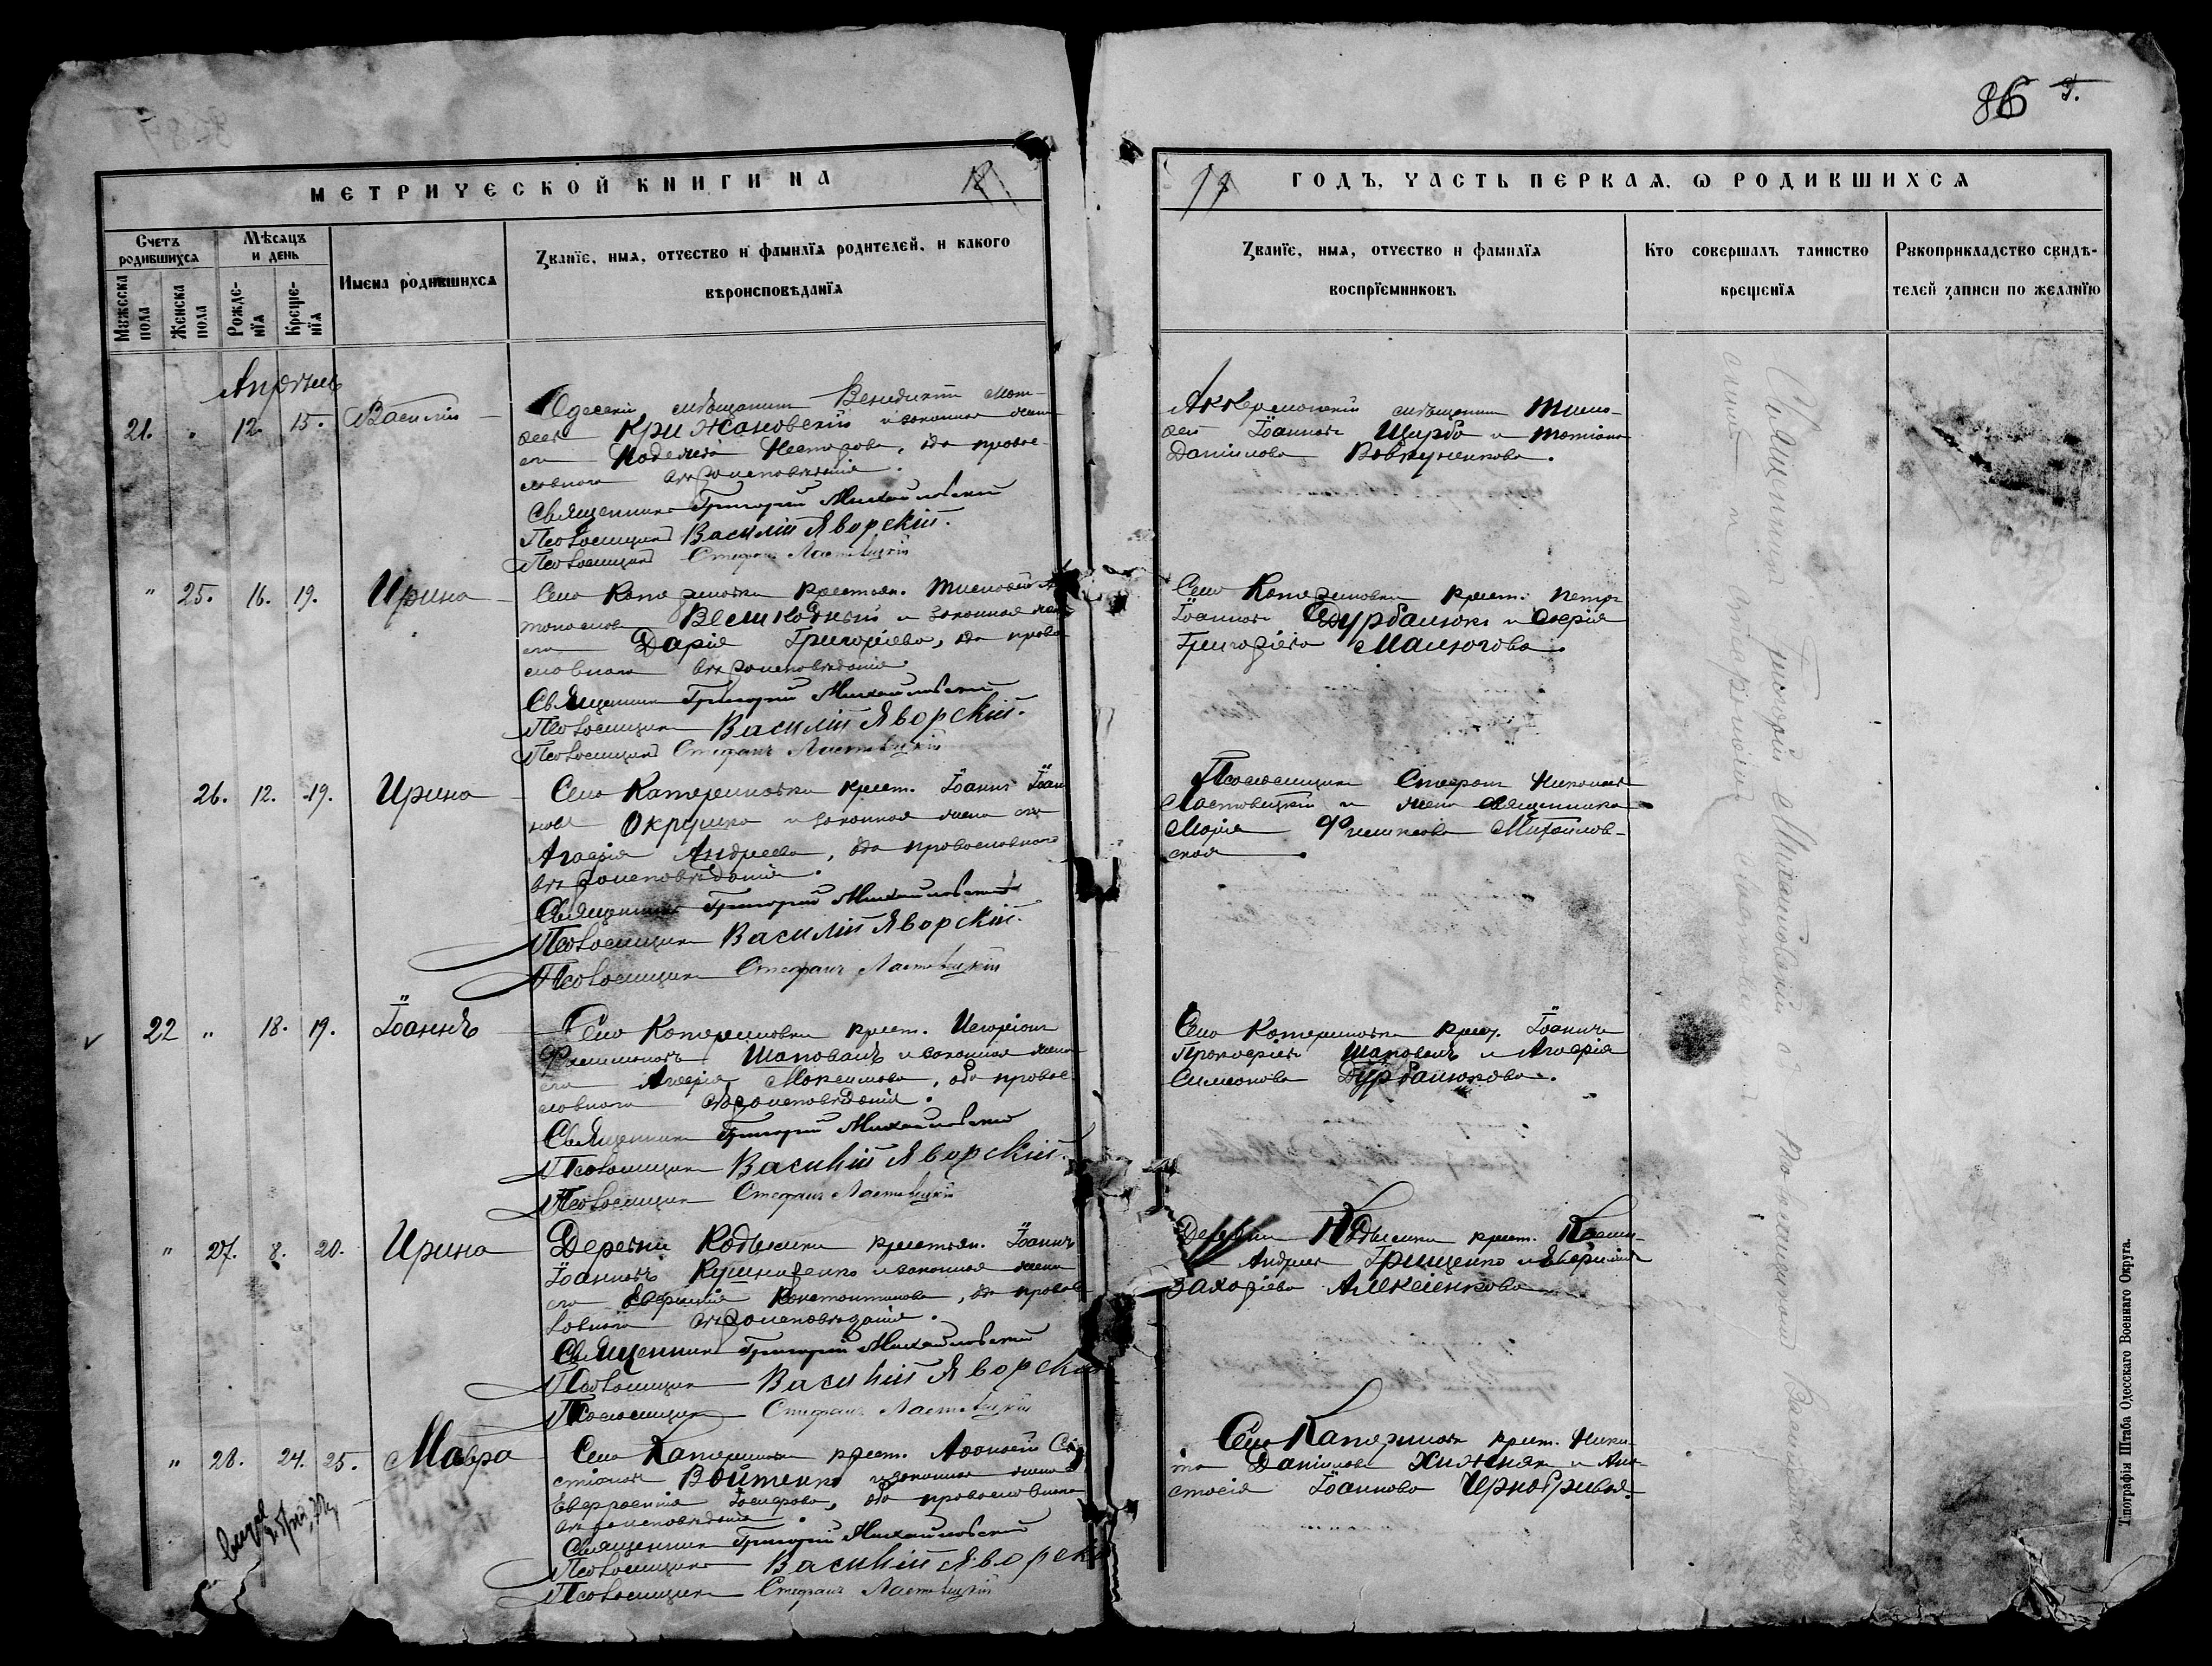 86
МЕТРИЧЕСКОЙ КНИГИ НА
ГОДЪ, ЧАСТЬ ПЕРВАЯ, Ѡ РОДИВШИХСЯ
Счетъ родившихся
Мѣсяцъ и день
Имена родившихся
Званїе, имя, отчество и фамилїя родителей, и какого
вѣроисповѣданїя
Мужеска пола
Женска пола
Рожде-нїя
Креще-нїя
Званїе, имя, отчество и фамилїя
воспрїемниковъ
Кто совершалъ таинство
крещенїя
Рукоприкладство свидѣ-
телей записи по желанїю
Апрѣль
21. " 12. 15. Василій
Одесскій мѣщанинъ Венидиктъ Мат-
ѳеевъ Крижановскій и законная жена
его Надежда Несторова, оба правос-
лавнаго вѣроисповѣданія.
Священникъ Григорій Михайловскій
Псаломщикъ Василій Яворскій.
Псаломщикъ Стефанъ Ластовецкій
Аккерманскій мѣщанинъ Тимо-
ѳей Іоанновъ Щерба и Татіана
Даніилова
" 25. 16. 19. Ирина
Села Катериновки крестьян. Тимоѳей
Великодный и законная жена
его Дарія Григоріева, оба право-
славнаго вѣроисповѣданія
Священникъ Григорій Михайловскій
Псаломщикъ Василій Яворскій.
Псаломщикъ Стефанъ Ластовецкій
Села Катериновки крест. Петръ
Іоанновъ Дурбалюкъ и
Григоріева Малюгова.
26. 12. 19. Ирина
Села Катериновки крест. Іоаннъ Іоан-
новъ Окрушко и законная жена его
Агафія Андреева, оба православнаго
вѣроисповѣданія.
Священникъ Григорій Михайловскій
Псаломщикъ Василій Яворскій.
Псаломщикъ Стефанъ Ластовецкій
Псаломщикъ Стефанъ Николаевъ
Ластовецкій и жена священника
Марія Михайлов-
ская
22 " 18. 19. Іоаннъ
Села Катериновки крест. Иларіонъ
Филимоновъ Шаповалъ и законная жена
его Агафія Максимова, оба правос-
лавнаго вѣроисповѣданія.
Священникъ Григорій Михайловскій
Псаломщикъ Василій Яворскій.
Псаломщикъ Стефанъ Ластовецкій
Села Катериновки крест. Іоаннъ
Прокофіевъ Шаповалъ и Агафія
Симеонова Дурбалюкова.
" 27. 8. 20. Ирина
Деревни Кодымки крестьян. Іоаннъ
Іоанновъ Кушниренко и законная жена
его Евфимія Константинова, оба правос-
лавнаго вѣроисповѣданія.
Священникъ Григорій Михайловскій
Псаломщикъ Василій Яворскій
Псаломщикъ Стефанъ Ластовецкій
Деревни Кодымки крест.
Андреевъ Грищенко и Евфимія
Захаріева Алексіенкова
" 28. 24. 25. Мавра
Села Катериновки крест. Аѳанасій Сева-
стіановъ Войтенко и законная жена
Евфросинія Іосифова, оба православнаго
вѣроисповѣданія.
Священникъ Григорій Михайловскій
Псаломщикъ Василій Яворскій
Псаломщикъ Стефанъ Ластовецкій
Села Катериновки крест. Ники-
та Даніиловъ Хижнякъ и Ана-
стасія Іоаннова Чернобривая.
Священникъ Григорій Михайловскій съ псаломщиками Василіемъ
Типографія Штаба Одесскаго Военнаго Округа.